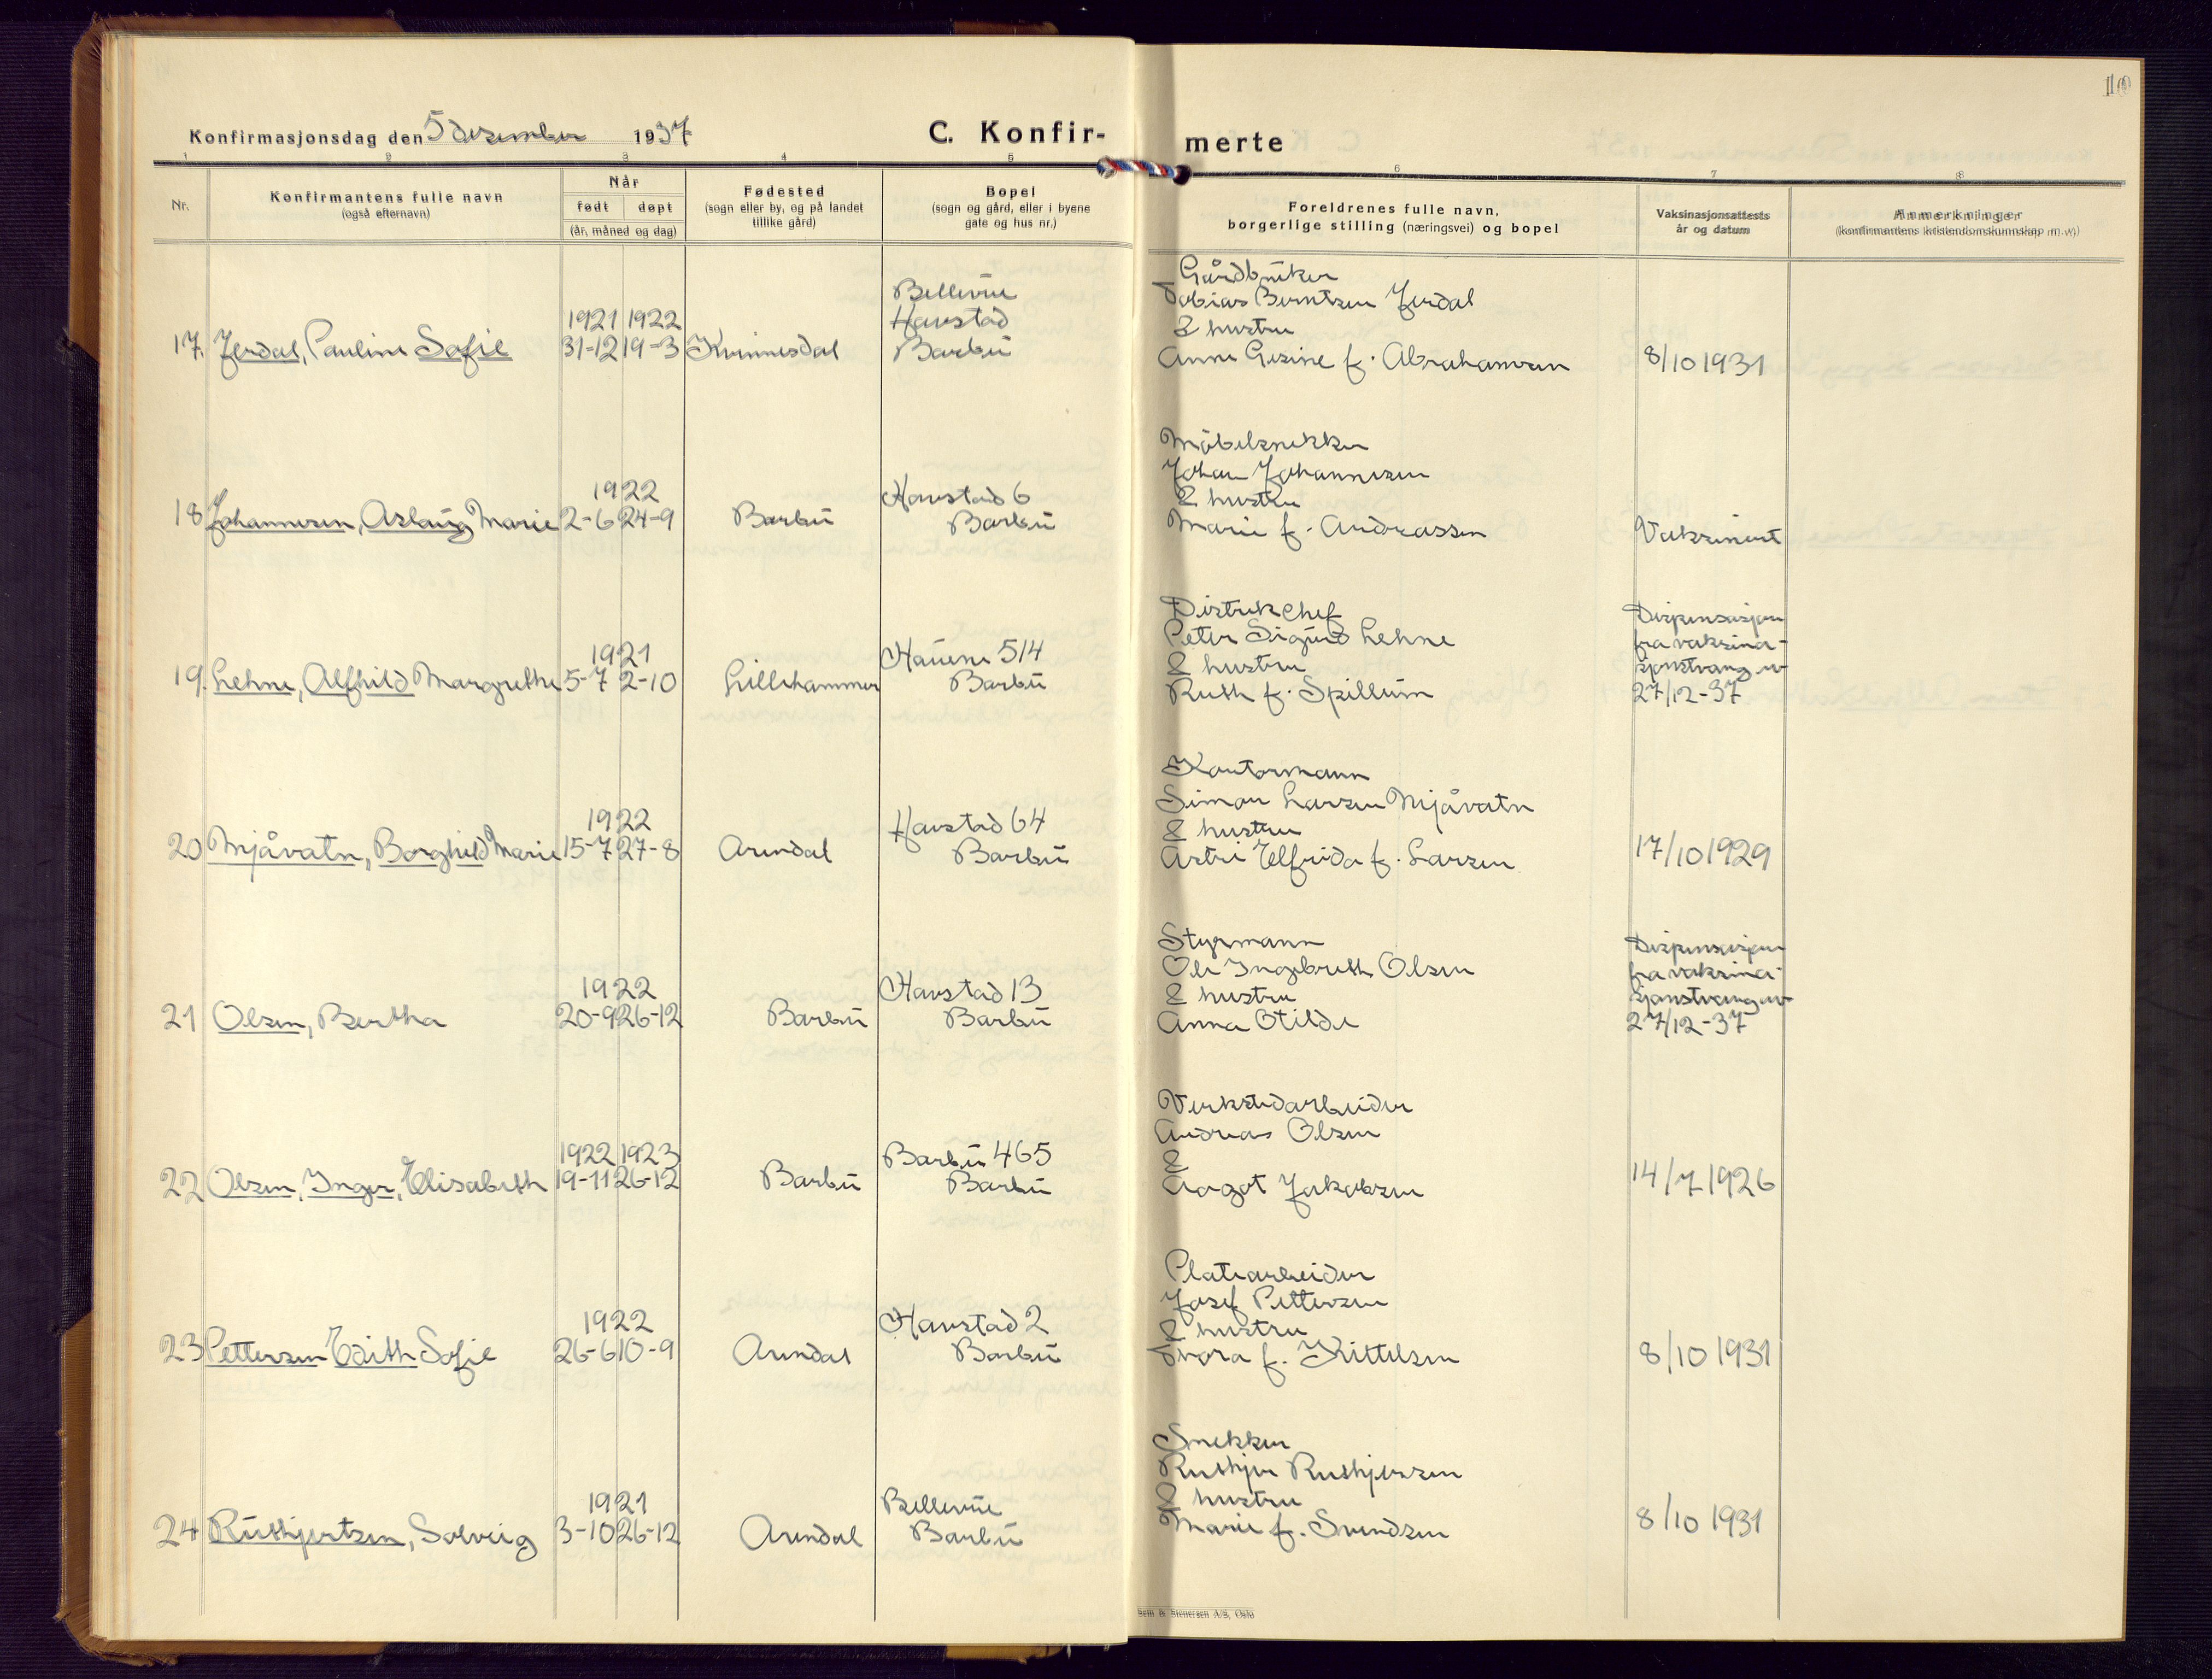 10
Konfirmasjonsdag den 5 desember 1937
C. Konfir-
merte
1 2 3 4 5 6 7 8
Nr.
Konfirmantens fulle navn
(også efternavn)
Når
født døpt
(år, måned og dag)
Fødested
(sogn eller by, og på landet
tillike gård)
Bopel
(sogn og gård, eller i byene
gate og hus nr.)
Foreldrenes fulle navn,
borgerlige stilling (næringsvei) og bopel
Vaksinasjonsattests
år og datum
Anmerkninger
(konfirmantens kristendomskunnskap m.v.)
17. Jerdal, Pauline Sofie
1921 1922
31-12 19-3
Kvinnesdal
Bellevue
Havstad
Barbu
Gårdbruker
Tobias Berntsen Jerdal
& hustru
Anne Gesine f. Abrahamsen
8/10 1931
18 Johannesen, Aslaug Marie
1922
2-6 24-9
Barbu
Havstad 6
Barbu
Møbelsnekker
Johan Johannesen
& hustru
Marie f. Andreassen
Vaksinert
19. Lehne, Alfhild Margrethe
1921
5-7 2-10
Lillehammer
Hauene 514
Barbu
Distriktchef
Peter Sigurd Lehne
& hustru
Ruth f. Spillum
Dispensasjon
fra vaksina-
sjonstvang av
27/12-37
20 Mjåvatn, Borghild Marie
1922
15-7 27-8
Arendal
Havstad 64
Barbu
Kontormann
Simon Larsen Mjåvatn
& hustru
Astri Elfrida f. Larsen
17/10 1929
21 Olsen, Bertha
1922
20-9 26-12
Barbu
Havstad 13
Barbu
Styrmann
Ole Ingebreth Olsen
& hustru
Anna Otilde
Dispensasjon
fra vaksina-
sjonstvang av
27/12-37
22 Olsen, Inger, Elisabeth
1922 1923
19-11 26-12
Barbu
Barbu 465
Barbu
Verkstedarbeider
Andreas Olsen
&
Aagot Jakobsen
14/7 1926
23 Pettersen Edith Sofie
1922
26-6 10-9
Arendal
Havstad 2
Barbu
Platearbeider
Josef Pettersen
& hustru
Tvora f. Kittelsen
8/10 1931
24 Ruthjertsen, Solveig
1921
3-10 26-12
Arendal
Bellevue
Barbu
Snekker
Ruthjer Ruthjersen
& hustru
Marie f. Svendsen
8/10 1931
Sem & Stenersen A/S, Oslo